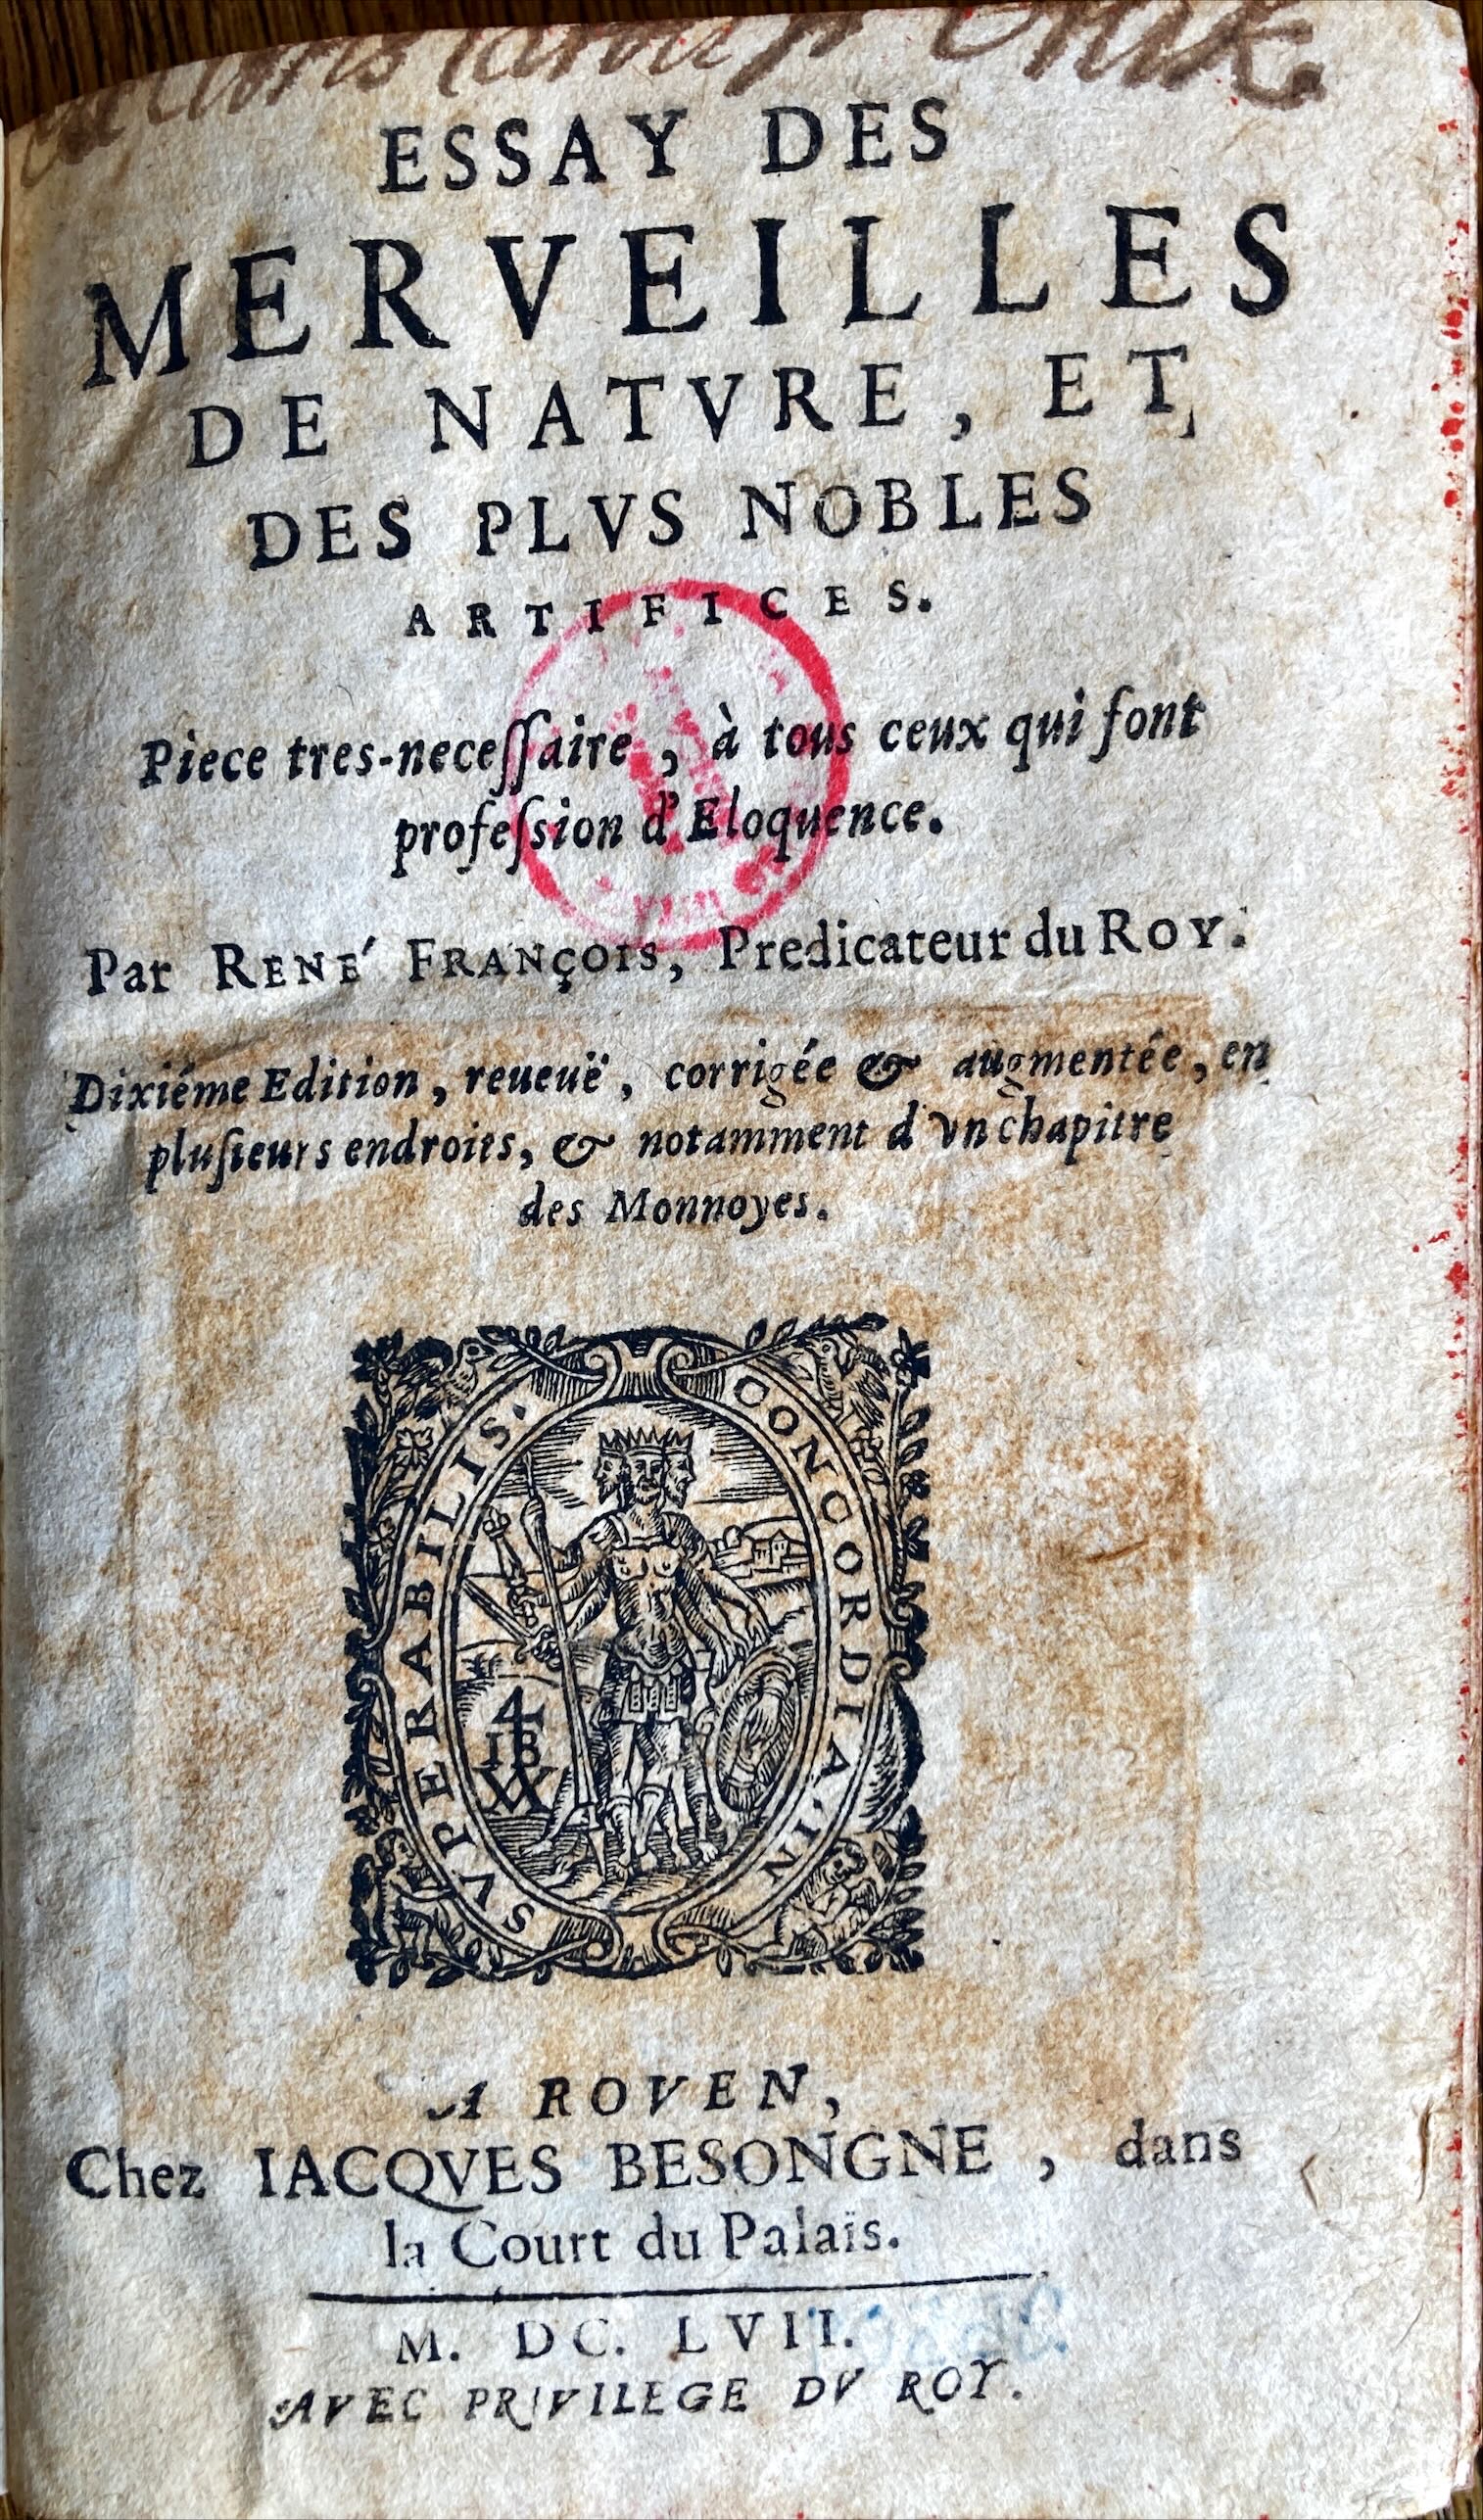 ESSAY DES
MERVEILLES
DE NATVRE, ET
DES PLVS NOBLES
ARTIFICES.
Piece tres-neceſſaire, à tous ceux qui font
profeſsion d'Eloquence.
Par RENÉ FRANÇOIS, Predicateur du ROY.
Dixiéme Edition, reueuë, corrigée & augmentée, en
pluſieurs endroits, & notamment d'vn chapitre
des Monnoyes.
CONCORDIA. IN
SVPERABILIS.
4
IB
A ROVEN,
Chez IACQVES BESONGNE, dans
la Court du Palais.
M. DC. LVII.
AVEC PRIVILEGE DV ROY.